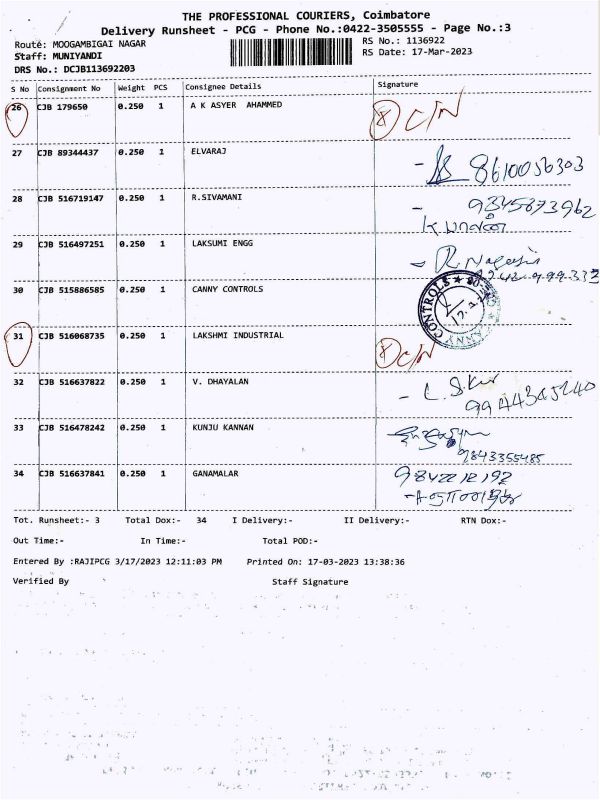 THE PROFESSIONAL COURIERS, Coimbatore
Delivery Runsheet - PCG - Phone No.:0422-3505555 - Page No.:3
Route: MOOGAMBIGAI NAGAR
RS No.: 1136922
Staff: MUNIYANDI
RS Date: 17-Mar-2023
DRS No.: DCJB113692203
S No Consignment No Weight PCS Consignee Details Signature
26 CJB 179650 0.250 1 A K ASYER AHAMMED C/N
27 CJB 89344437 0.250 1 ELVARAJ - 8610056303
28 CJB 516719147 0.250 1 R.SIVAMANI - 9345873962
29 CJB 516497251 0.250 1 LAKSUMI ENGG -
30 CJB 515886585 0.250 1 CANNY CONTROLS CANNY CONTROLS
31 CJB 516068735 0.250 1 LAKSHMI INDUSTRIAL C/N
32 CJB 516637822 0.250 1 V. DHAYALAN -
33 CJB 516478242 0.250 1 KUNJU KANNAN
9843355485
34 CJB 516637841 0.250 1 GANAMALAR
Tot. Runsheet:- 3 Total Dox:- 34 I Delivery:- II Delivery:- RTN Dox:-
Out Time:- In Time:- Total POD:-
Entered By :RAJIPCG 3/17/2023 12:11:03 PM Printed On: 17-03-2023 13:38:36
Verified By Staff Signature